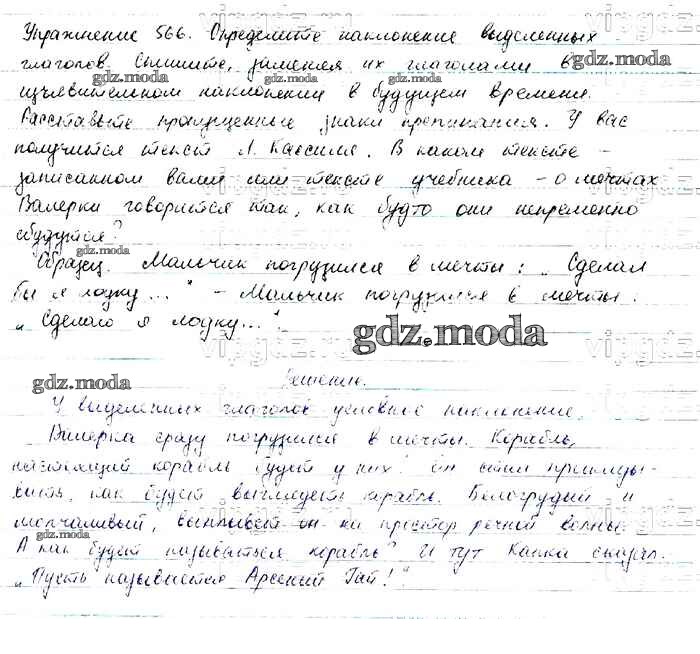 Упражнение 566. Определите наклонение выделенных
глаголов. Спишите, заменяя их глаголами в
изъявительном наклонении в будущем времени.
Расставьте пропущенные знаки препинания. У вас
получится текст Л. Кассиля. В каком тексте –
записанном вами или тексте учебника – о мечтах
Валерки говорится так, как будто они непременно
сбудутся?
Образец. Мальчик погрузился в мечты: „Сделал
бы я лодку..." – Мальчик погрузился в мечты:
„Сделаю я лодку...".
gdz.moda
Решение.
У выделенных глаголов условное наклонение.
Валерка сразу погрузился в мечты. Корабль,
настоящий корабль будет у них! Он стал прикиды-
вать, как будет выглядеть корабль. Белогрудый и
молчаливый, выплывет он на простор речной волны.
А как будет называться корабль? И тут Капка сказал:
„Пусть называется Арсений Гай!"